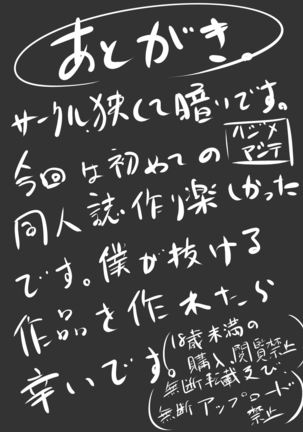 あとがき。
サークル、狭くて暗いです。
今回は初めての
ハジメ
マシテ
同人誌、作り楽しかった
です。僕が抜ける
作品を作れたら
幸いです。
(18歳未満の
購入、閲覧禁止
無断転載及び
無断アップロード
禁止)